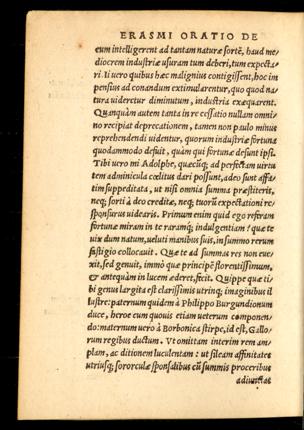 ERASMI ORATIO DE
eum intelligerent ad tantam naturæ sortē, haud me/
diocrem industriæ usuram tum deberi, tum expecta/
ri. Ii uero quibus hæc malignius contigissent, hoc im
pensius ad conandum extimularentur, quo quod na
tura uideretur diminutum, industria exæquarent.
Quanquàm autem tanta in re cessatio nullam omni
no recipiat deprecationem, tamen paulo minus
reprehendendi uidentur, quorum industriæ fortuna
quodammodo defuit, quàm qui fortunæ desunt ipsi.
Tibi uero mi Adolphe, quæcūq; ad perfectam uirtu
tem adminicula cœlitus dari possunt, adeo sunt affa/
tim suppeditata, ut nisi omnia summa præstiteris,
neq; sorti à deo creditæ, neq; tuorū expectationi re/
sponsurus uidearis. Primum enim quid ego referam
fortunæ miram in te raramq; indulgentiam? quæ te
uix dum natum, ueluti manibus suis, in summo rerum
fastigio collocauit. Quæ te ad summas res non eue/
xit, sed genuit, immò quæ principē florentissimum,
& antequàm in lucem æderet, fecit. Quippe quæ ti
bi genus largita est clarissimis utrinq; imaginibus il
lustre: paternum quidem à Philippo Burgundionum
duce, heroe cum quouis etiam ueterum componen/
do: maternum uero à Borbonica stirpe, id est, Gallo/
rum regibus ductum. Vt omittam interim rem am/
plam, ac ditionem luculentam: ut sileam affinitates
utriusq; sororculæ sponsalibus cū summis proceribus
adiunctas